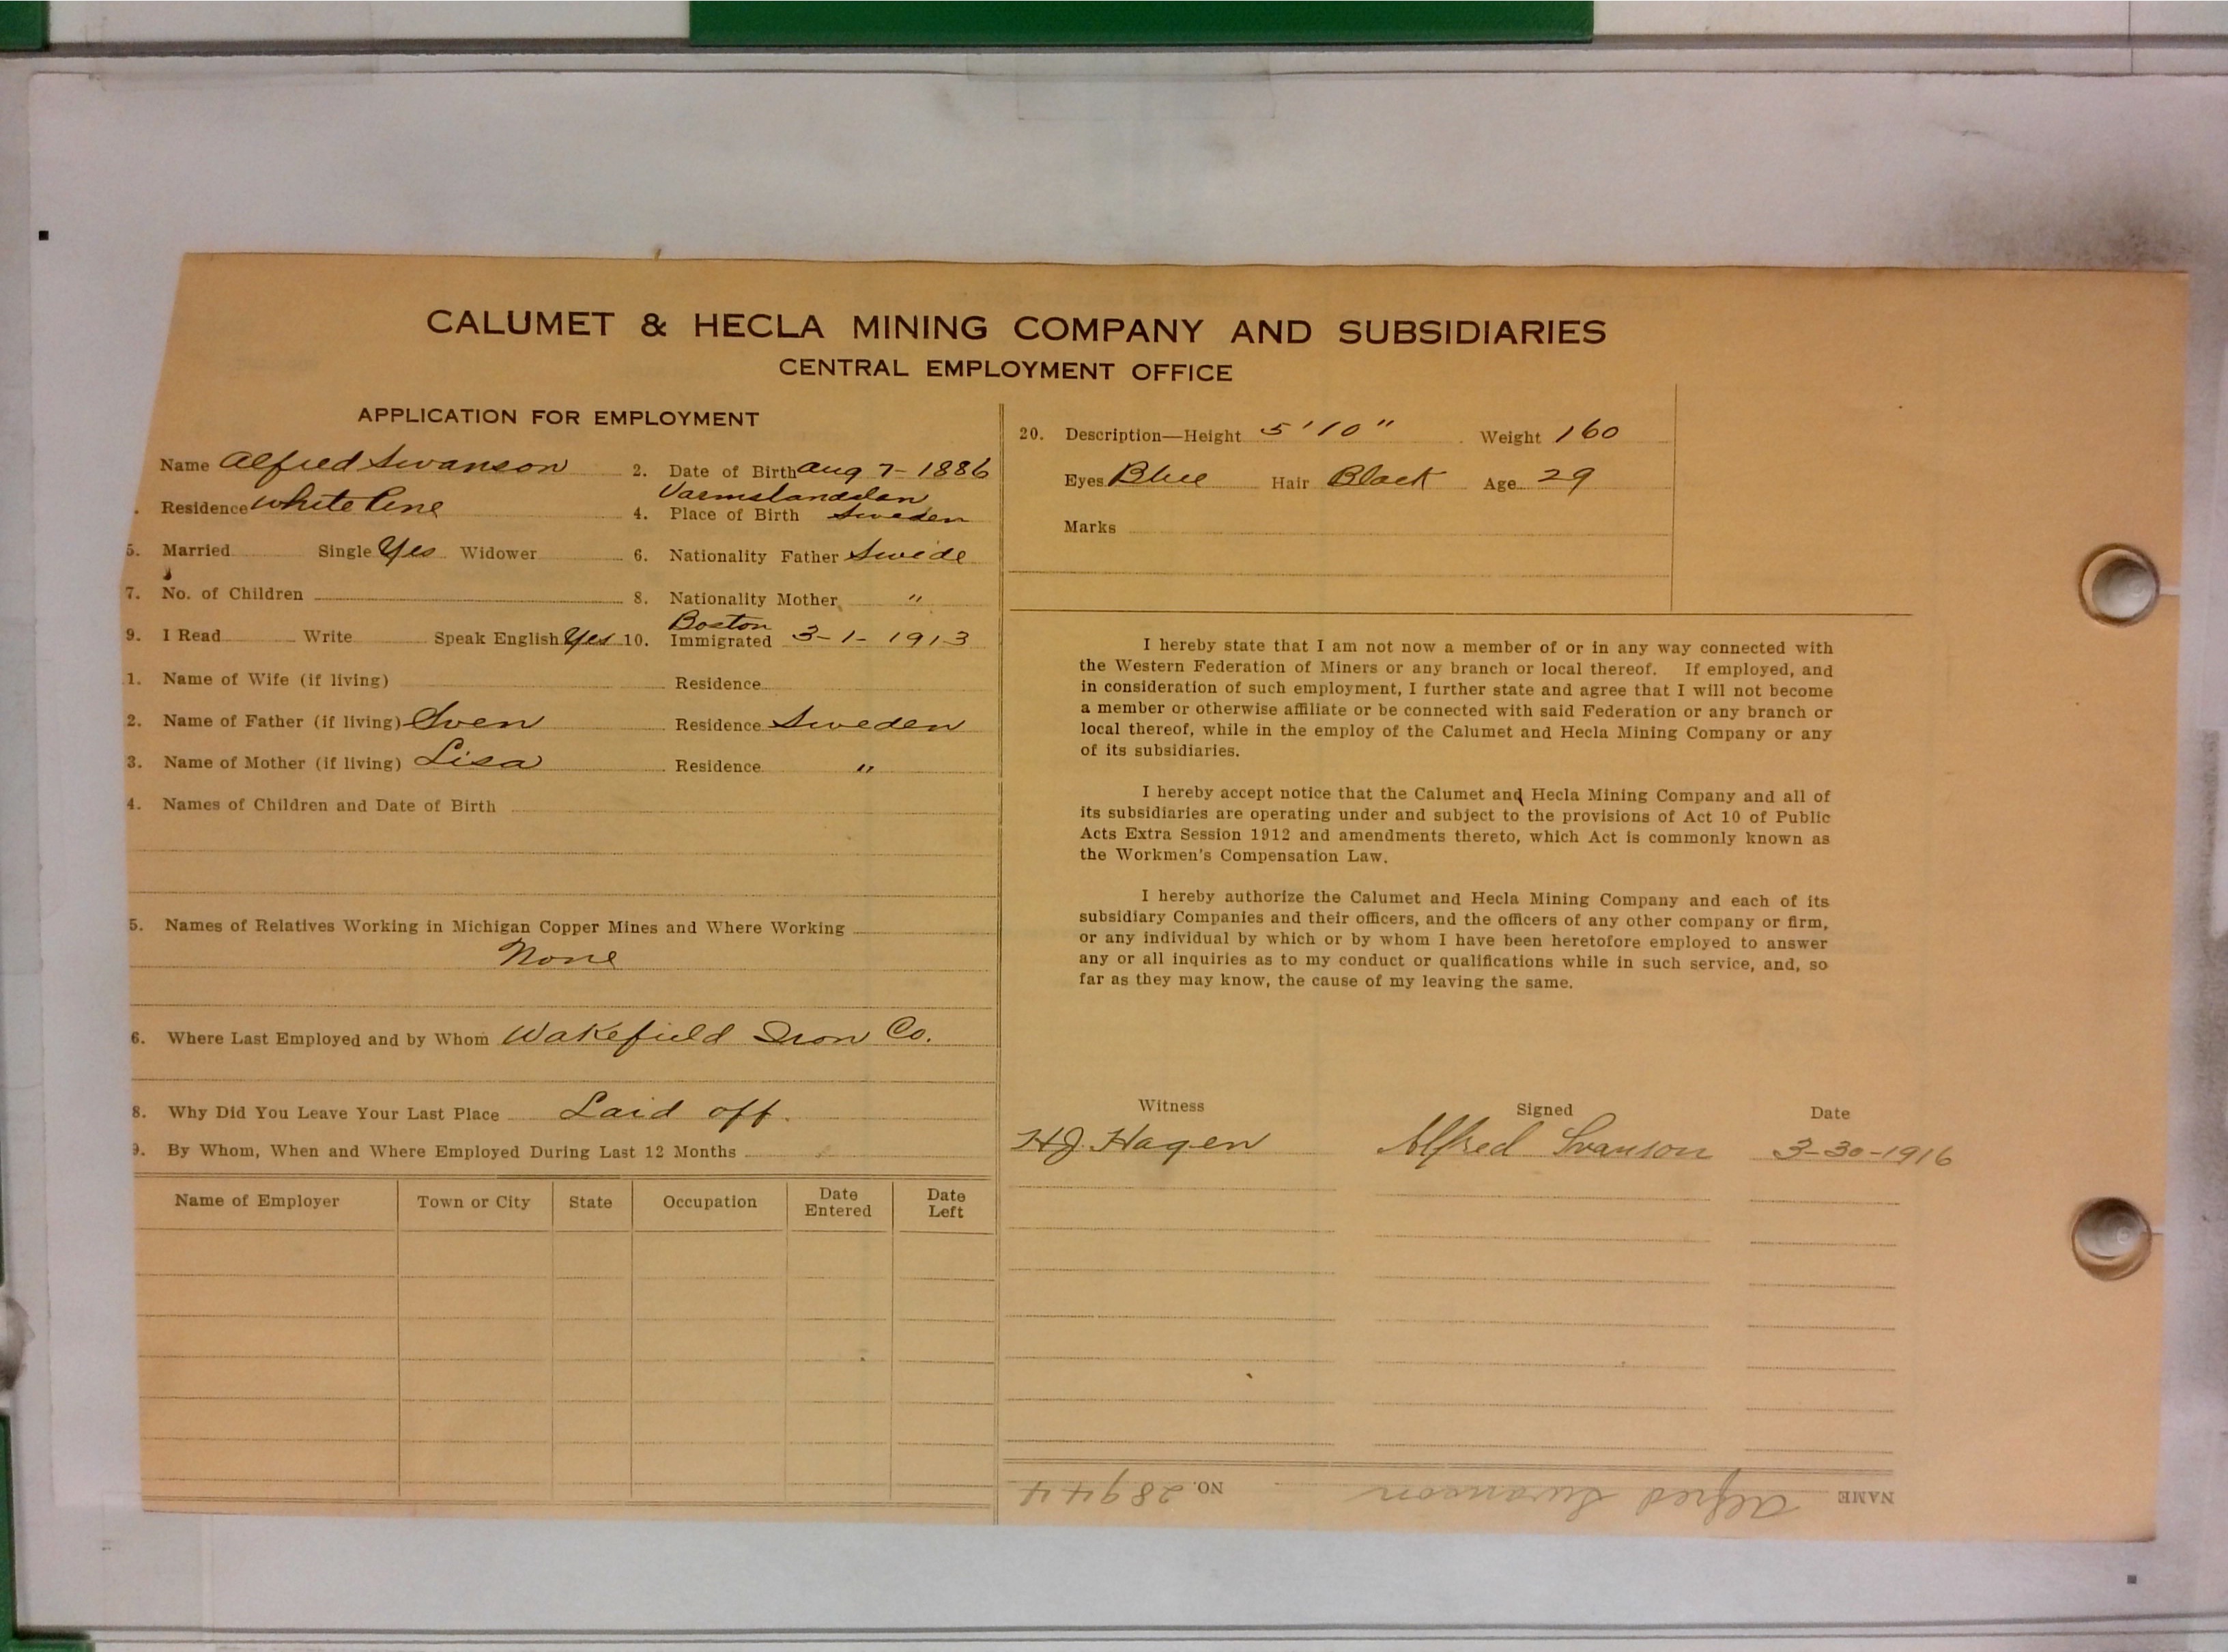 CALUMET & HECLA MINING COMPANY AND SUBSIDIARIES
CENTRAL EMPLOYMENT OFFICE
APPLICATION FOR EMPLOYMENT
Name Alfred Swanson 2. Date of Birth Aug 7-1886
. Residence White Pine 4. Place of Birth Varmslandslan Sweden
5. Married Single Yes Widower 6. Nationality Father Swede
7. No. of Children 8. Nationality Mother "
9. I Read Write Speak English Yes 10. Immigrated Boston 3-1-1913
1. Name of Wife (if living) Residence
2. Name of Father (if living) Sven Residence Sweden
3. Name of Mother (if living) Lisa Residence "
4. Names of Children and Date of Birth
5. Names of Relatives Working in Michigan Copper Mines and Where Working
None
6. Where Last Employed and by Whom Wakefield Iron Co.
8. Why Did You Leave Your Last Place Laid off.
9. By Whom, When and Where Employed During Last 12 Months
Name of Employer Town or City State Occupation Date Entered Date Left
20. Description—Height 5'10" Weight 160
Eyes Blue Hair Black Age 29
Marks
I hereby state that I am not now a member of or in any way connected with
the Western Federation of Miners or any branch or local thereof. If employed, and
in consideration of such employment, I further state and agree that I will not become
a member or otherwise affiliate or be connected with said Federation or any branch or
local thereof, while in the employ of the Calumet and Hecla Mining Company or any
of its subsidiaries.
I hereby accept notice that the Calumet and Hecla Mining Company and all of
its subsidiaries are operating under and subject to the provisions of Act 10 of Public
Acts Extra Session 1912 and amendments thereto, which Act is commonly known as
the Workmen's Compensation Law.
I hereby authorize the Calumet and Hecla Mining Company and each of its
subsidiary Companies and their officers, and the officers of any other company or firm,
or any individual by which or by whom I have been heretofore employed to answer
any or all inquiries as to my conduct or qualifications while in such service, and, so
far as they may know, the cause of my leaving the same.
Witness Signed Date
H.J. Hagen Alfred Svanson 3-30-1916
NAME Alfred Swanson NO. 28944